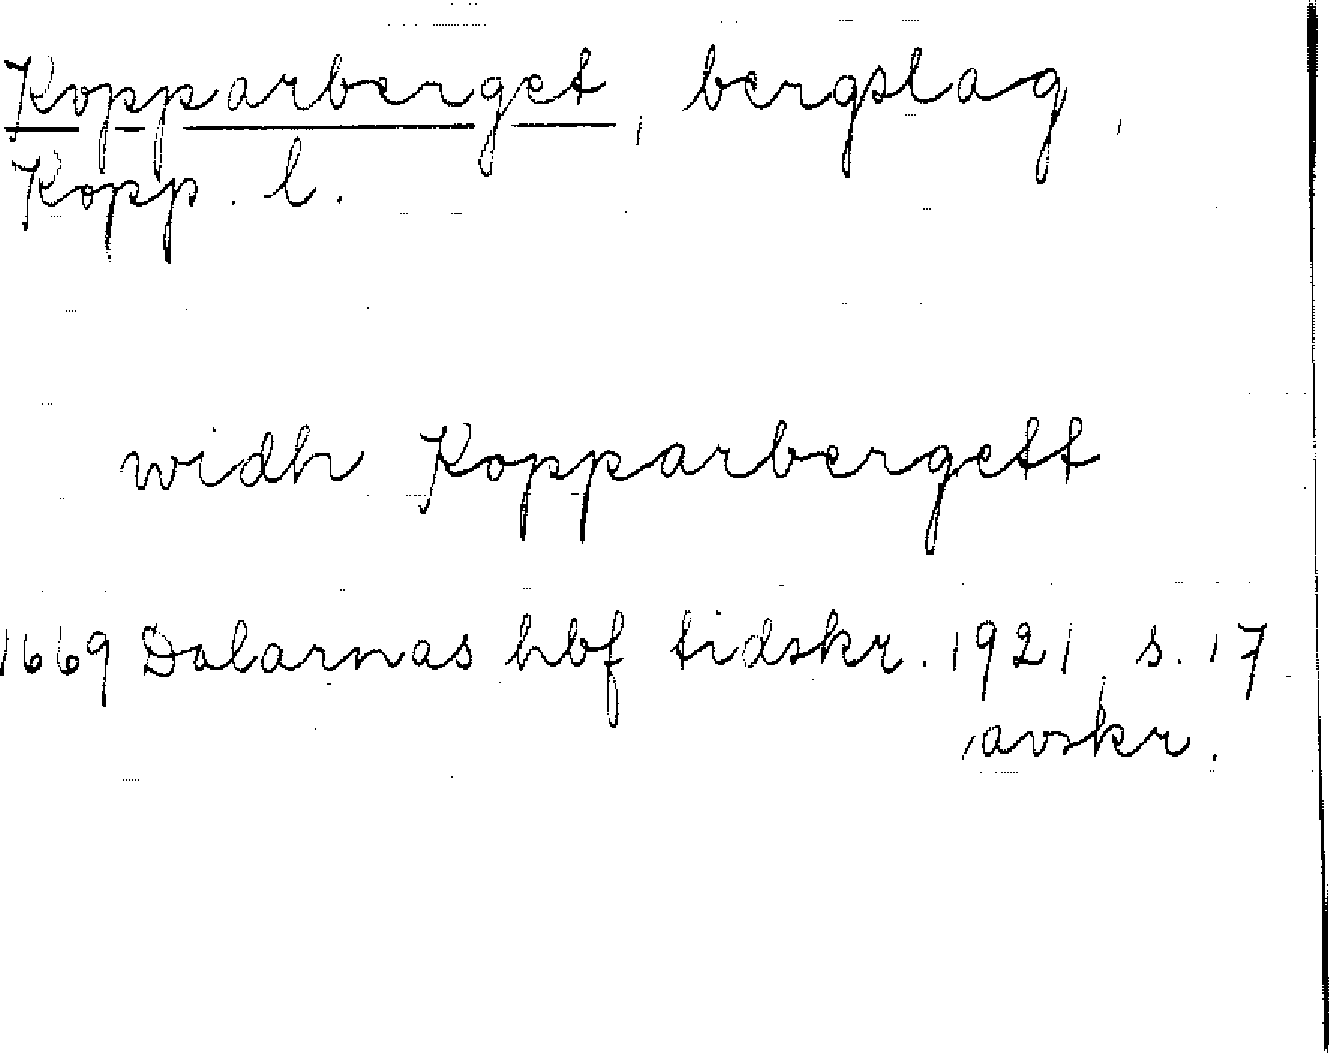 Kopparberget, bergslag,
Kopp. l.
widh Kopparbergett
1669 Dalarnas hbf tidskr. 1921 s. 17
avskr.